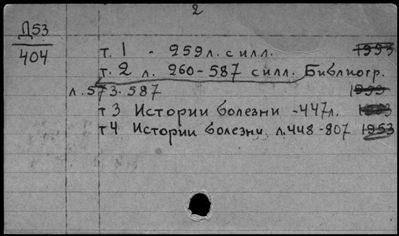 2
Д53
404
т. 1 - 259 л. с илл. 1953
т. 2 л. 260-587 с илл. Библиогр.
л. 573-587
т 3 Истории болезни -447 л.
т 4 Истории болезни л. 448-807 1953